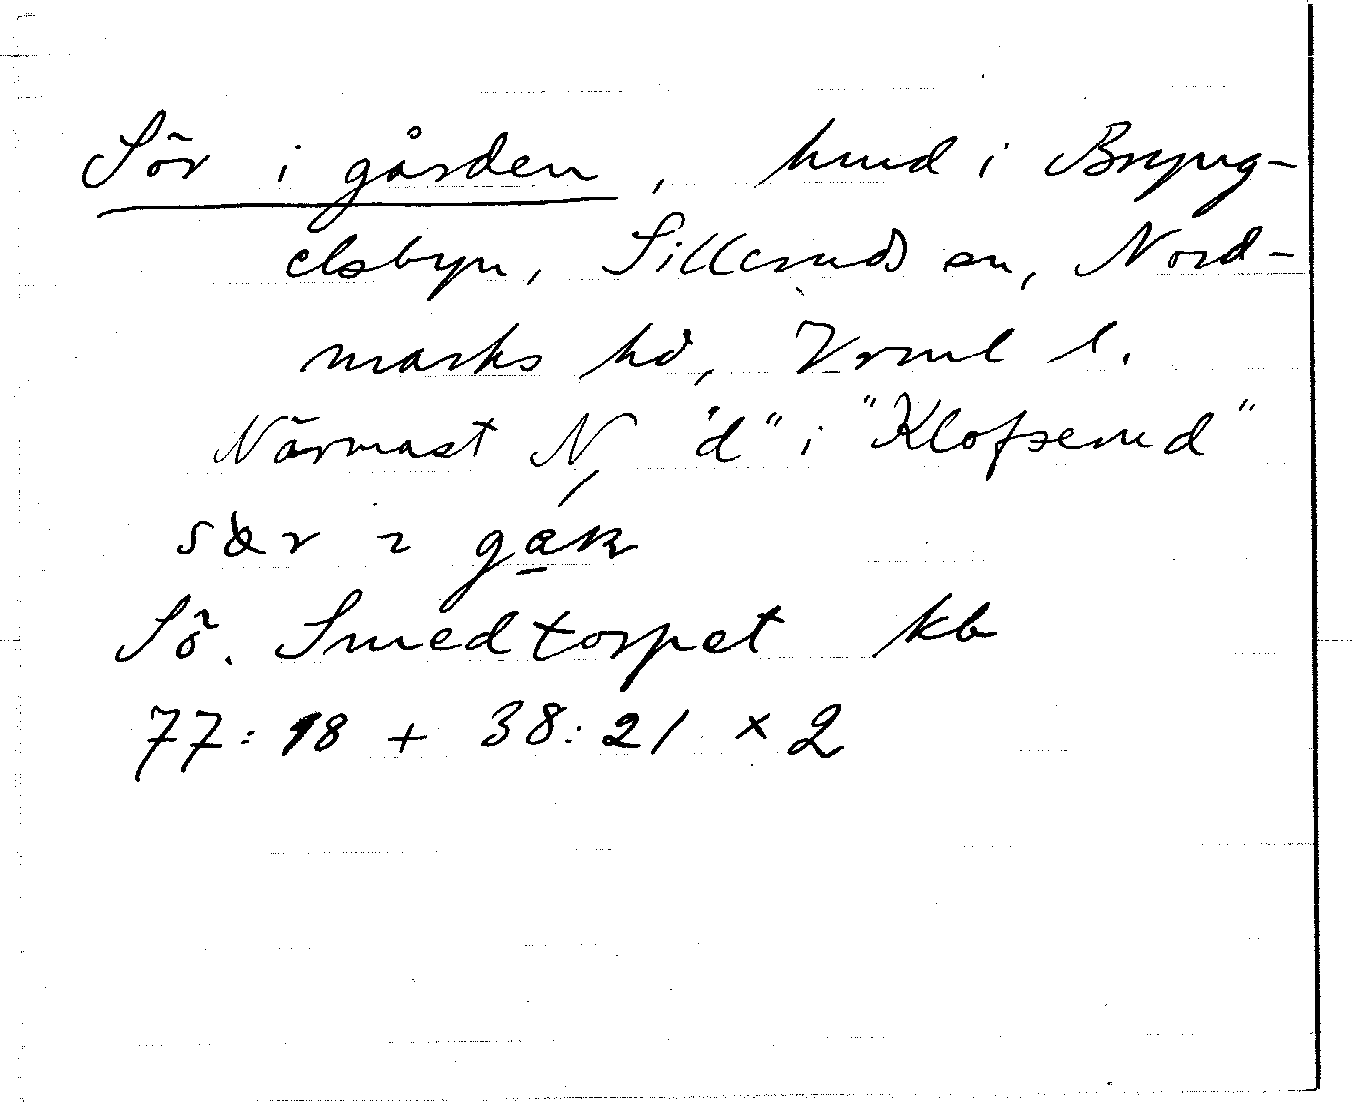 Sör i gården, hmd i Bryng-
elsbyn, Silleruds sn, Nord-
marks hd, Vrml l.
Närmast N, "d" i "Klofserud"
sær ɩ gak
Sö. Smedtorpet kb
77:18 + 38:21 × 2